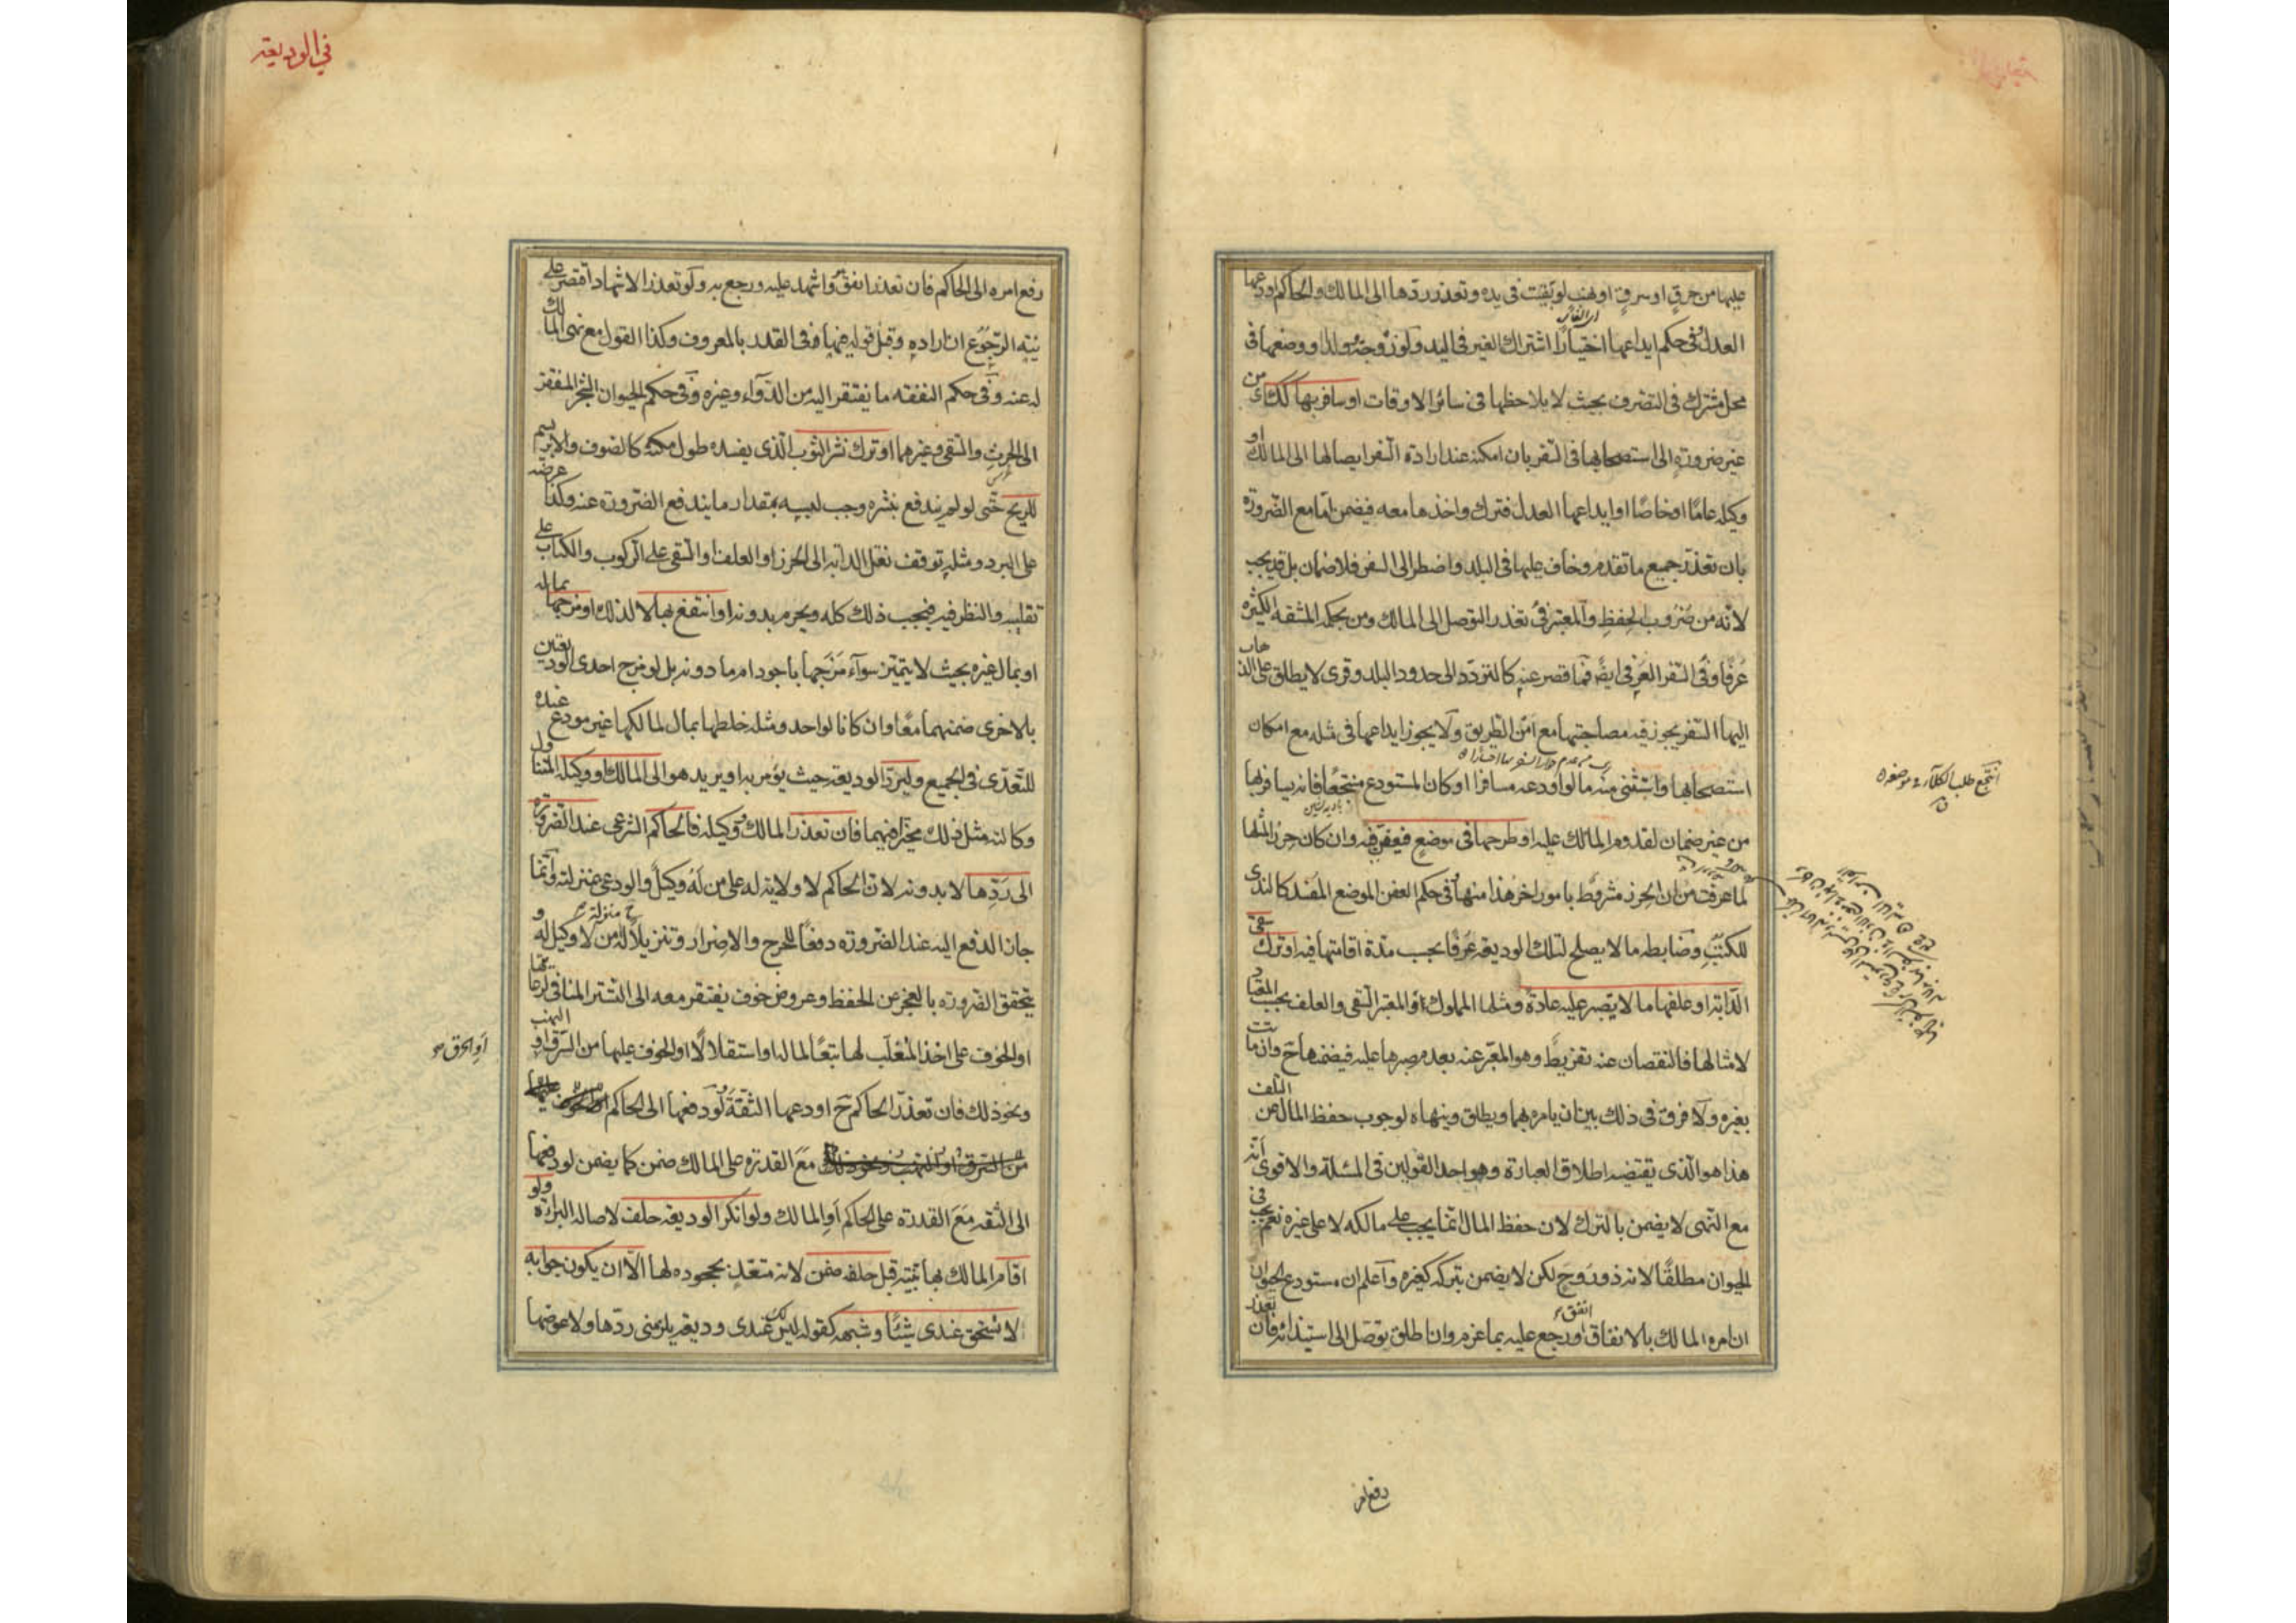 عليها من حرق او سرق او نهب لو بقيت فى يده وتعذر ردها الى المالك والحاكم اودعها
العدل وفى حكم ايداعها اختيارا اشتراك الغير فى اليد ولو زوجته وولدا ووضعها فى
محل مشترك فى التصرف بحيث لا يلاحظها فى سائر الاوقات او سافر بها كذلك اى من
غير ضرورة الى استصحابها فى السفر بان امكنه عند ارادة السفر ايصالها الى المالك او
وكيله عاما او خاصا او ايداعها العدل فترك واخذها معه فيضمن اما مع الضرورة
بان تعذر جميع ما تقدم وخاف عليها فى البلد واضطر الى السفر فلا ضمان بل قد يجب
لانه من ضروب الحفظ والمعتبر فى تعذر التوصل الى المالك ومن بحكمه المشقه الكثيره
عرفا وفى السفر العرفى ايضا فما قصر عنه كالتردد الى حدود البلد وقرى لا يطلق على الذهاب
اليها السفر يجوز فيه مصاحبتها مع امن الطريق ولا يجوز ايداعها فى مثله مع امكان
استصحابها واستثنى منه ما لو اودعه مسافرا او كان المستودع منتجعا فانه يسافر بها
من غير ضمان لقدوم المالك عليه او طرحها فى موضع تتعفن فيه وان كان حرزا لمثلها
لما عرفت من ان الحرز مشروط بامور اخر هذا منها وفى حكم العفن الموضع المفسد كالندى
للكتب وضابطه ما لا يصلح لتلك الوديعة عرفا بحسب مدة اقامتها فيه او ترك سقى
الدابة او علفها ما لا يصبر عليه عادة ومثلها المملوك والمعتبر السقى والعلف بحسب المعتاد
لامثالها فالنقصان عنه تفريط وهو المعبر عنه بعدم صبرها عليه فيضمنها ح وان ماتت
بغيره ولا فرق فى ذلك بين ان يامره بهما ويطلق وينهاه لوجوب حفظ المال عن التلف
هذا هو الذى يقتضيه اطلاق العبارة وهو احد القولين فى المسئلة والاقوى انه
مع النهى لا يضمن بالترك لان حفظ المال انما يجب على مالكه لا على غيره نعم يجب فى
الحيوان مطلقا لانه ذو روح لكن لا يضمن بتركه كغيره واعلم ان مستودع الحيوان
ان امره المالك بالانفاق انفق ورجع عليه بما غرم وان اطلق توصل الى استيذانه فان تعذر
انتجع طلب الكلاء فى موضعه
رفع امره
فى الوديعة
رفع امره الى الحاكم فان تعذر انفق هو واشهد عليه ورجع به ولو تعذر الاشهاد اقتصر على
نية الرجوع ان اراده وقبل قوله فيها وفى القدر بالمعروف وكذا القول مع نهى المالك
له عنه وفى حكم النفقه ما يفتقر اليه من الدواء وغيره وفى حكم الحيوان الشجر المفتقر
الى الحرث والسقى وغيرهما او ترك نشر الثوب الذى يفسده طول مكثه كالصوف والابريسم
للريح حتى لو لم يندفع بنشره وجب لبسه بمقدار ما يندفع الضرورة عنه وكذا عرضه
على البرد ومثله توقف نقل الدابة الى الحرز او العلف او السقى على الركوب والكتاب على
تقليبه والنظر فيه فيجب ذلك كله ويحرم بدونه او انتفع بها لا لذلك او مزجها بماله
او بمال غيره بحيث لا يتميز سواء مزجها باجود ام ما دونه بل لو مزج احدى الوديعتين
بالاخرى ضمنهما معا وان كانا لواحد ومثله خلطها بمال لمالكها غير مودع عنده
للتعدى فى الجميع وليرد الوديعة حيث يؤمر به او يريد هو الى المالك او وكيله المتناول
وكالته مثل ذلك مخيرا فيهما فان تعذر المالك او وكيله فالحاكم الشرعى عند الضرورة
الى ردها لا بدونه لان الحاكم لا ولاية له على من له وكيل والودعى بمنزلته وانما
جاز الدفع اليه عند الضرورة دفعا للحرج والاضرار وتنزيلا له ح منزلة من لا وكيل له و
يتحقق الضرورة بالعجز عن الحفظ وعروض خوف يفتقر معه الى التستر المنافى لرعايتها
او الخوف على اخذ المتغلب لها تبعا لماله او استقلالا او الخوف عليها من السرق او النهب
او الحرق
ونحو ذلك فان تعذر الحاكم ح اودعها الثقة ولو دفعها الى الحاكم
مع القدرة على المالك ضمن كما يضمن لو دفعها
الى الثقه مع القدرة على الحاكم او المالك ولو انكر الوديعة حلف لاصالة البراءة ولو
اقام المالك بها بينة قبل حلفه ضمن لانه متعد بجحوده لها الا ان يكون جوابه
لا تستحق عندى شيئا وشبهه كقوله ليس لك عندى وديعة يلزمنى ردها ولا عوضها